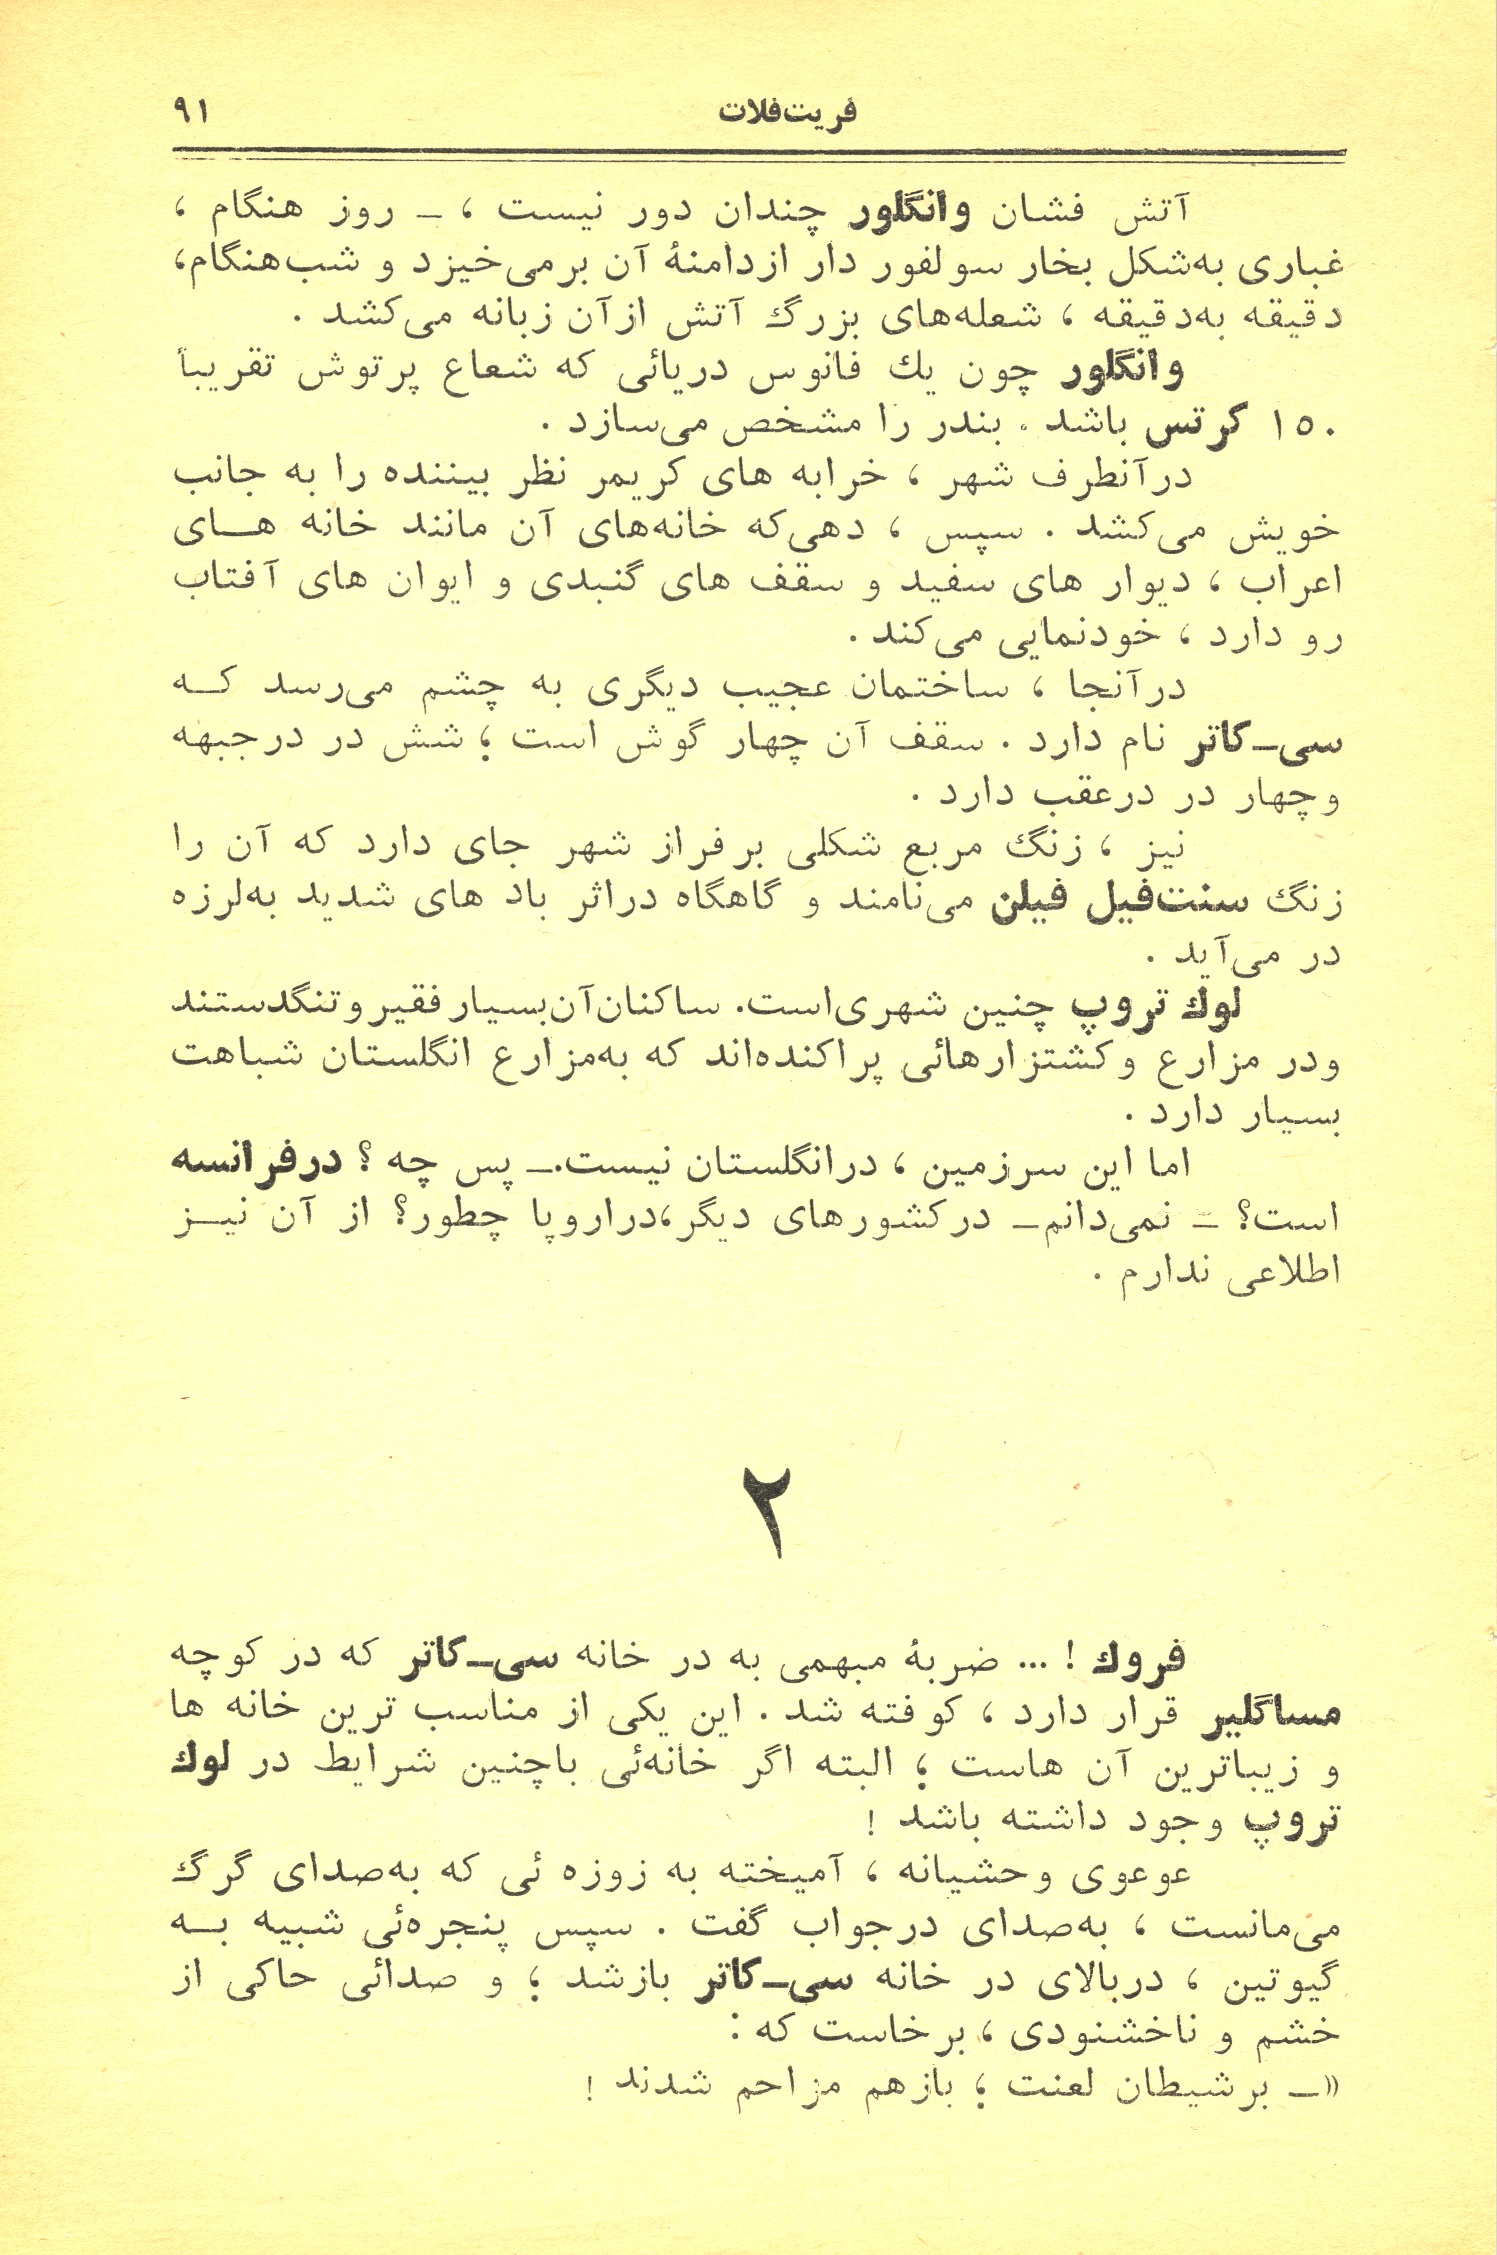 فریت‌فلات
۹۱
آتش فشان وانگلور چندان دور نیست ، ـ روز هنگام ،
غباری به‌شکل بخار سولفور دار ازدامنهٔ آن برمی‌خیزد و شب‌هنگام،
دقیقه به‌دقیقه ، شعله‌های بزرگ آتش ازآن زبانه می‌کشد .
وانگلور چون یك فانوس دریائی که شعاع پرتوش تقریباً
۱۵۰ کرتس باشد . بندر را مشخص می‌سازد .
درآنطرف شهر ، خرابه های کریمر نظر بیننده را به جانب
خویش می‌کشد . سپس ، دهی‌که خانه‌های آن مانند خانه هـای
اعراب ، دیوار های سفید و سقف های گنبدی و ایوان های آفتاب
رو دارد ، خودنمایی می‌کند .
درآنجا ، ساختمان عجیب دیگری به چشم می‌رسد کـه
سی‌ـ‌کاتر نام دارد . سقف آن چهار گوش است ؛ شش در درجبهه
وچهار در درعقب دارد .
نیز ، زنگ مربع شکلی برفراز شهر جای دارد که آن را
زنگ سنت‌فیل فیلن می‌نامند و گاهگاه دراثر باد های شدید به‌لرزه
در می‌آید .
لوك تروپ چنین شهری‌است. ساکنان‌آن‌بسیارفقیروتنگدستند
ودر مزارع وکشتزارهائی پراکنده‌اند که به‌مزارع انگلستان شباهت
بسیار دارد .
اما این سرزمین ، درانگلستان نیست.ـ پس چه ؟ درفرانسه
است؟ ـ نمی‌دانم‌ـ درکشورهای دیگر،دراروپا چطور؟ از آن نیـز
اطلاعی ندارم .
۲
فروك ! ... ضربهٔ مبهمی به در خانه سی‌ـ‌کاتر که در کوچه
مساگلیر قرار دارد ، کوفته شد . این یکی از مناسب ترین خانه ها
و زیباترین آن هاست ؛ البته اگر خانه‌ئی باچنین شرایط در لوك
تروپ وجود داشته باشد !
عوعوی وحشیانه ، آمیخته به زوزه ئی که به‌صدای گرگ
می‌مانست ، به‌صدای درجواب گفت . سپس پنجره‌ئی شبیه بـه
گیوتین ، دربالای در خانه سی‌ـ‌کاتر بازشد ؛ و صدائی حاکی از
خشم و ناخشنودی ، برخاست که :
«ـ برشیطان لعنت ؛ بازهم مزاحم شدند !